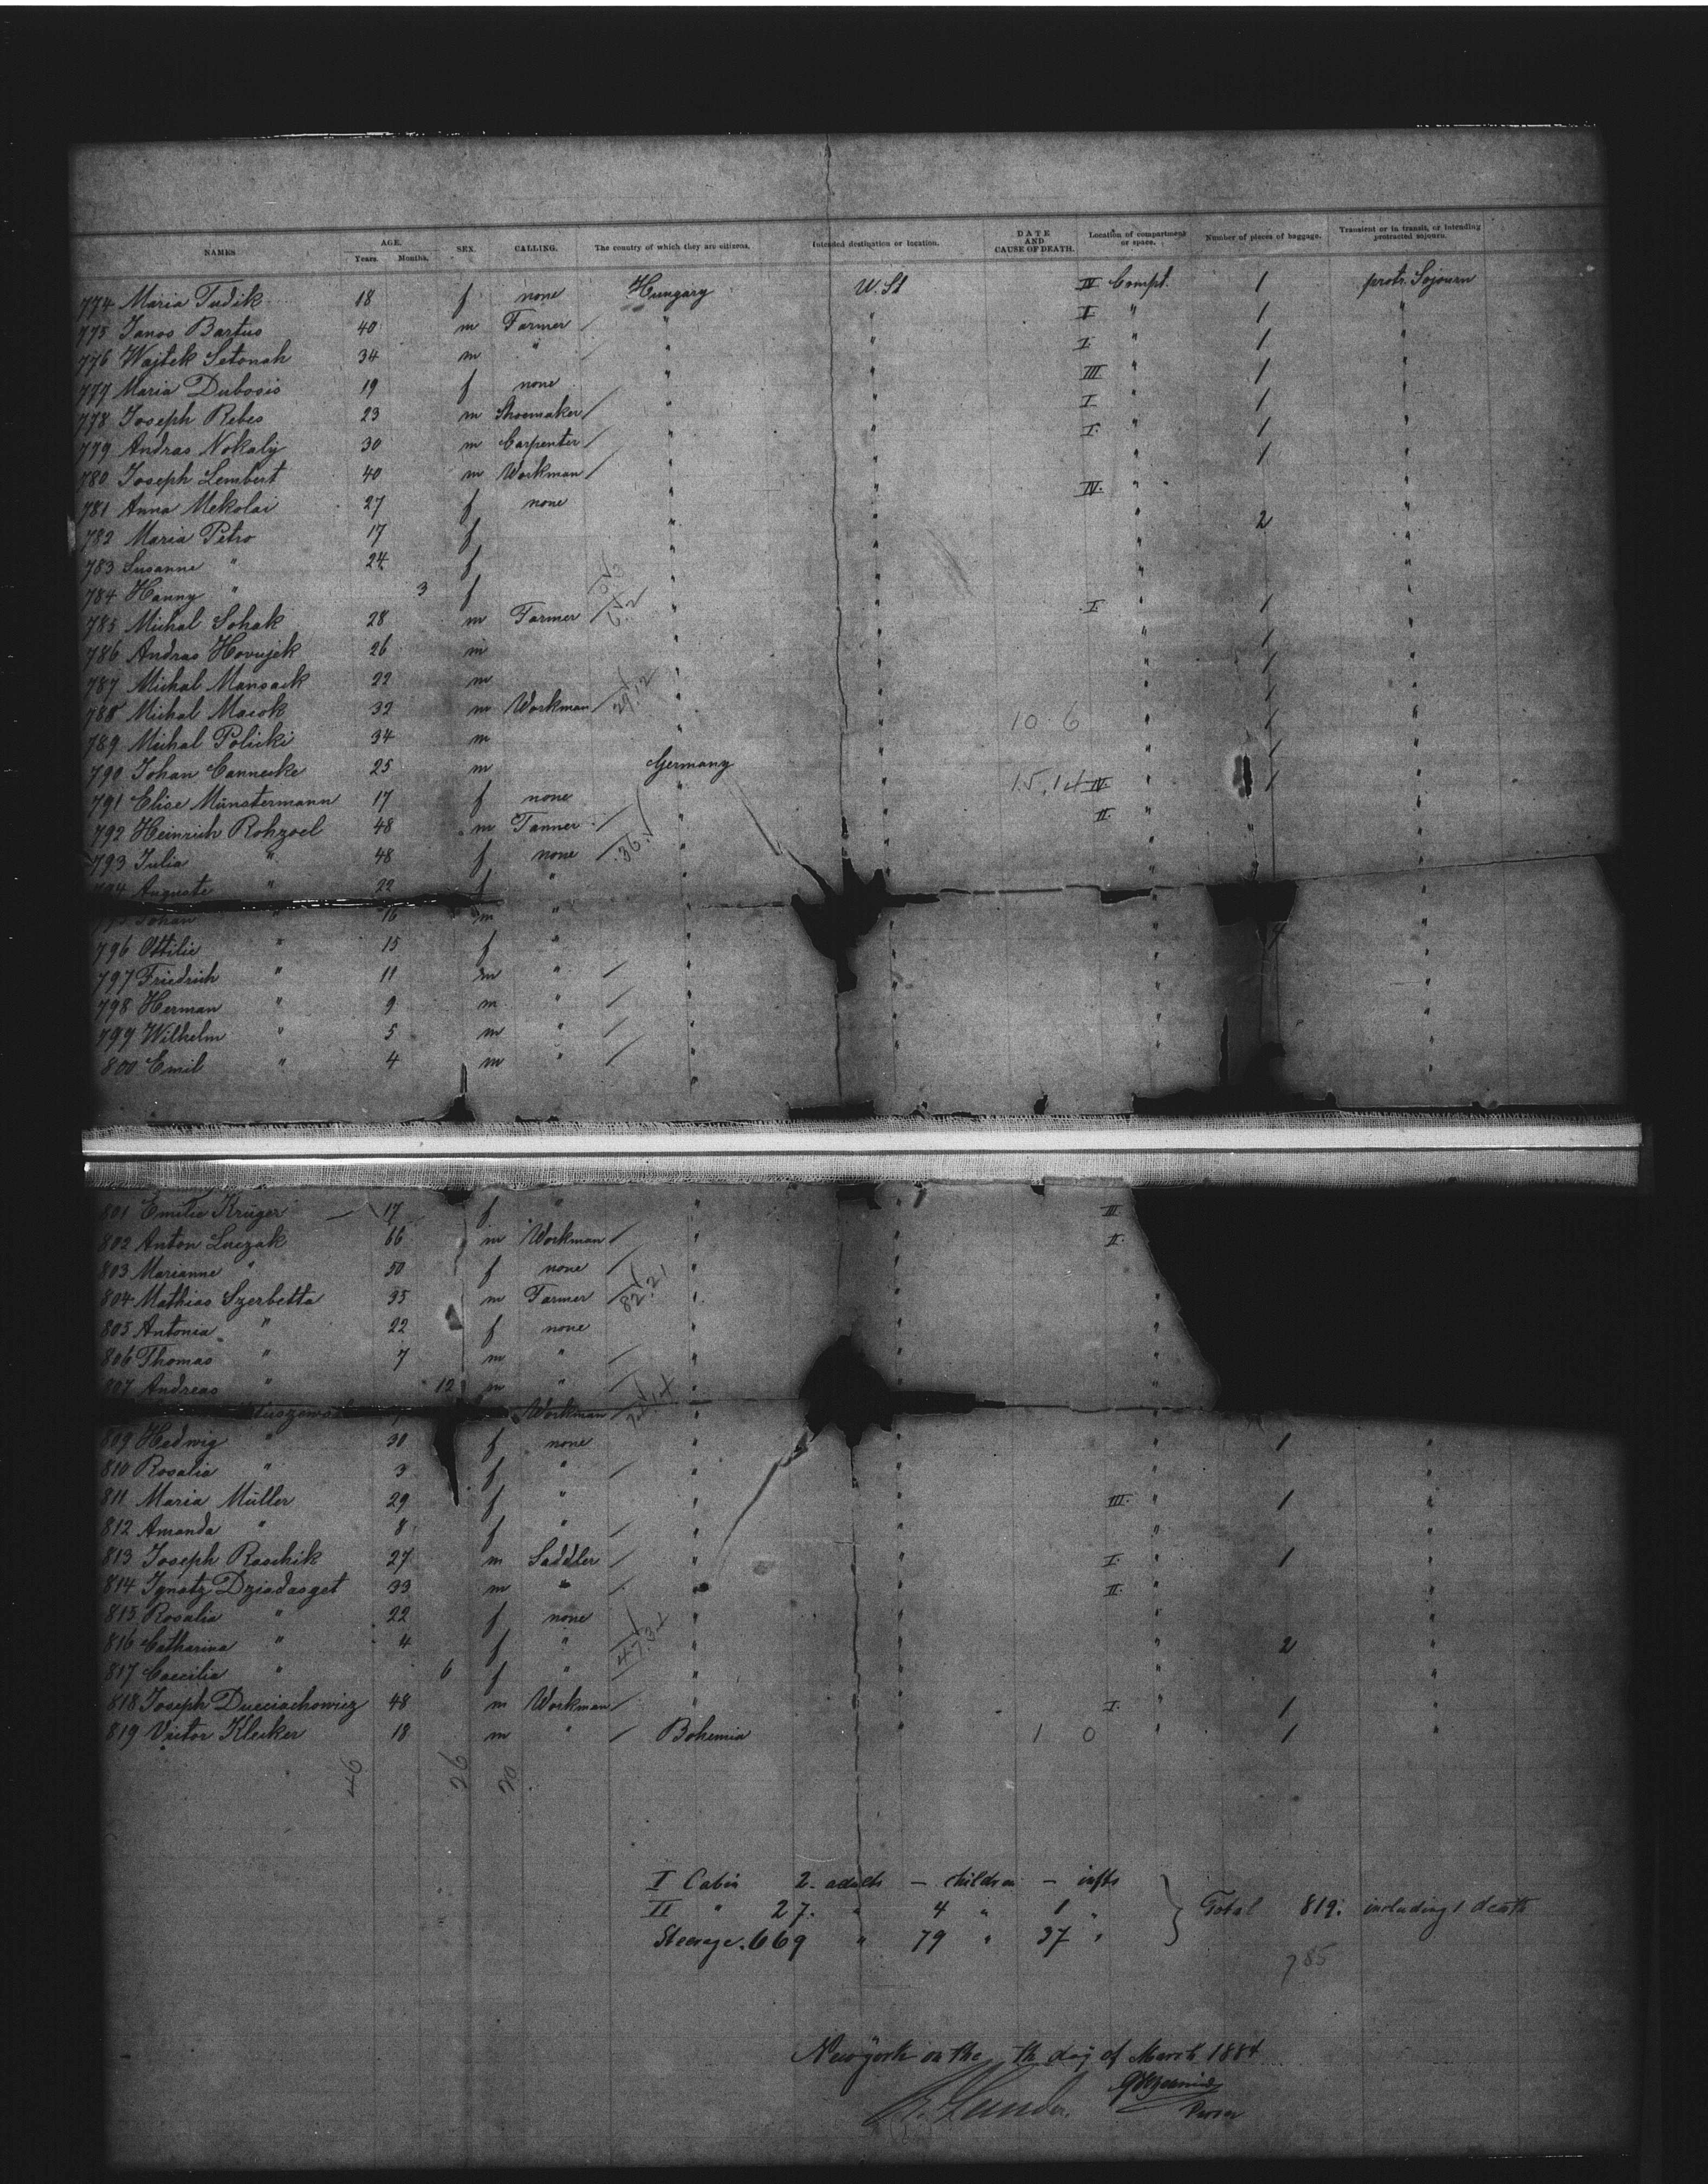 NAMES AGE. Years. Months. SEX. CALLING. The country of which they are citizens. Intended destination or location. DATE AND CAUSE OF DEATH. Location of compartment or space. Number of pieces of baggage. Transient or in transit, or intending protracted sojourn.
774 Maria Tudik 18 f none Hungary U. St IV Compt. 1 protr. Sojourn
775 Janos Bartus 40 m Farmer / " " I " 1 "
776 Wojtek Setonah 34 m " / " " I " 1 "
777 Maria Dubosis 19 f none " " III " 1 "
778 Joseph Rebes 23 m Shoemaker / " " I " 1 "
779 Andras Nokaly 30 m Carpenter / " " I " 1 "
780 Joseph Lembert 40 m Workman / " " " 1 "
781 Anna Mekolai 27 f none " " IV " "
782 Maria Petro 17 f " " " 2 "
783 Susanne " 24 f " " " "
784 Hanny " 3 f " " " "
785 Michal Sohak 28 m Farmer / " " I " 1 "
786 Andras Hovujek 26 m " " " 1 "
787 Michal Mansack 22 m " " " 1 "
788 Michal Macok 32 m Workman / " " " 1 "
789 Michal Policki 34 m " " 10 6 " 1 "
790 Johan Cannecke 25 m Germany " " 1 "
791 Elise Münstermann 17 f none " " 15,14 IV " 1 "
792 Heinrich Rohzoel 48 m Tanner / " " II " "
793 Julia " 48 f none / 36 " " " "
794 Auguste " 22 f " " " "
795 Johan " 16 m " " "
796 Ottilie " 15 f " " " " 4 "
797 Friedrich " 11 m " / " " " "
798 Herman " 9 m " / " " " "
799 Wilhelm " 5 m " / " " " "
800 Emil " 4 m " / " " " "
801 Emilie Krüger 17 f " " " III "
802 Anton Luczak 66 m Workman / " " II "
803 Marianne " 50 f none / " " "
804 Mathias Szerbetta 35 m Farmer / 82.21 " " "
805 Antonia " 22 f none " " "
806 Thomas " 7 m " / " "
807 Andreas " 12 m " / " "
Workman / "
809 Hedwig " 30 f none " " " 1 "
810 Rosalia " 3 f " / " " " "
811 Maria Müller 29 f " " " III " 1 "
812 Amanda " 8 f " / " " " "
813 Joseph Raschik 27 m Saddler / " " I " 1 "
814 Ignatz Dziadasget 33 m " / " " II " "
815 Rosalia " 22 f none " " " "
816 Catharina " 4 f " " " " 2 "
817 Caecilia " 6 f " " " " "
818 Joseph Ducciachowicz 48 m Workman / " " I " 1 "
819 Victor Klecker 18 m " / Bohemia " 1 0 " 1 "
46 26 20
I Cabin 2 adults — children — infts
II " 27 " 4 " 1 "
Steerage. 669 " 79 " 37 "
Total 819. including 1 death
785
New york on the th day of March 1884
Purser